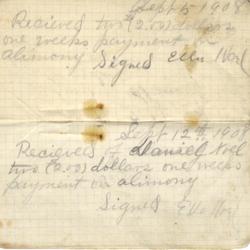 Sept 5 1908
Recieved two (2.00) dollars
one weeks payment on
alimony Signed Ella Noel
Sept 12th 1908
Recieved of Daniel Noel
two (2.00) dollars one weeks
payment on alimony
Signed Ella Noel